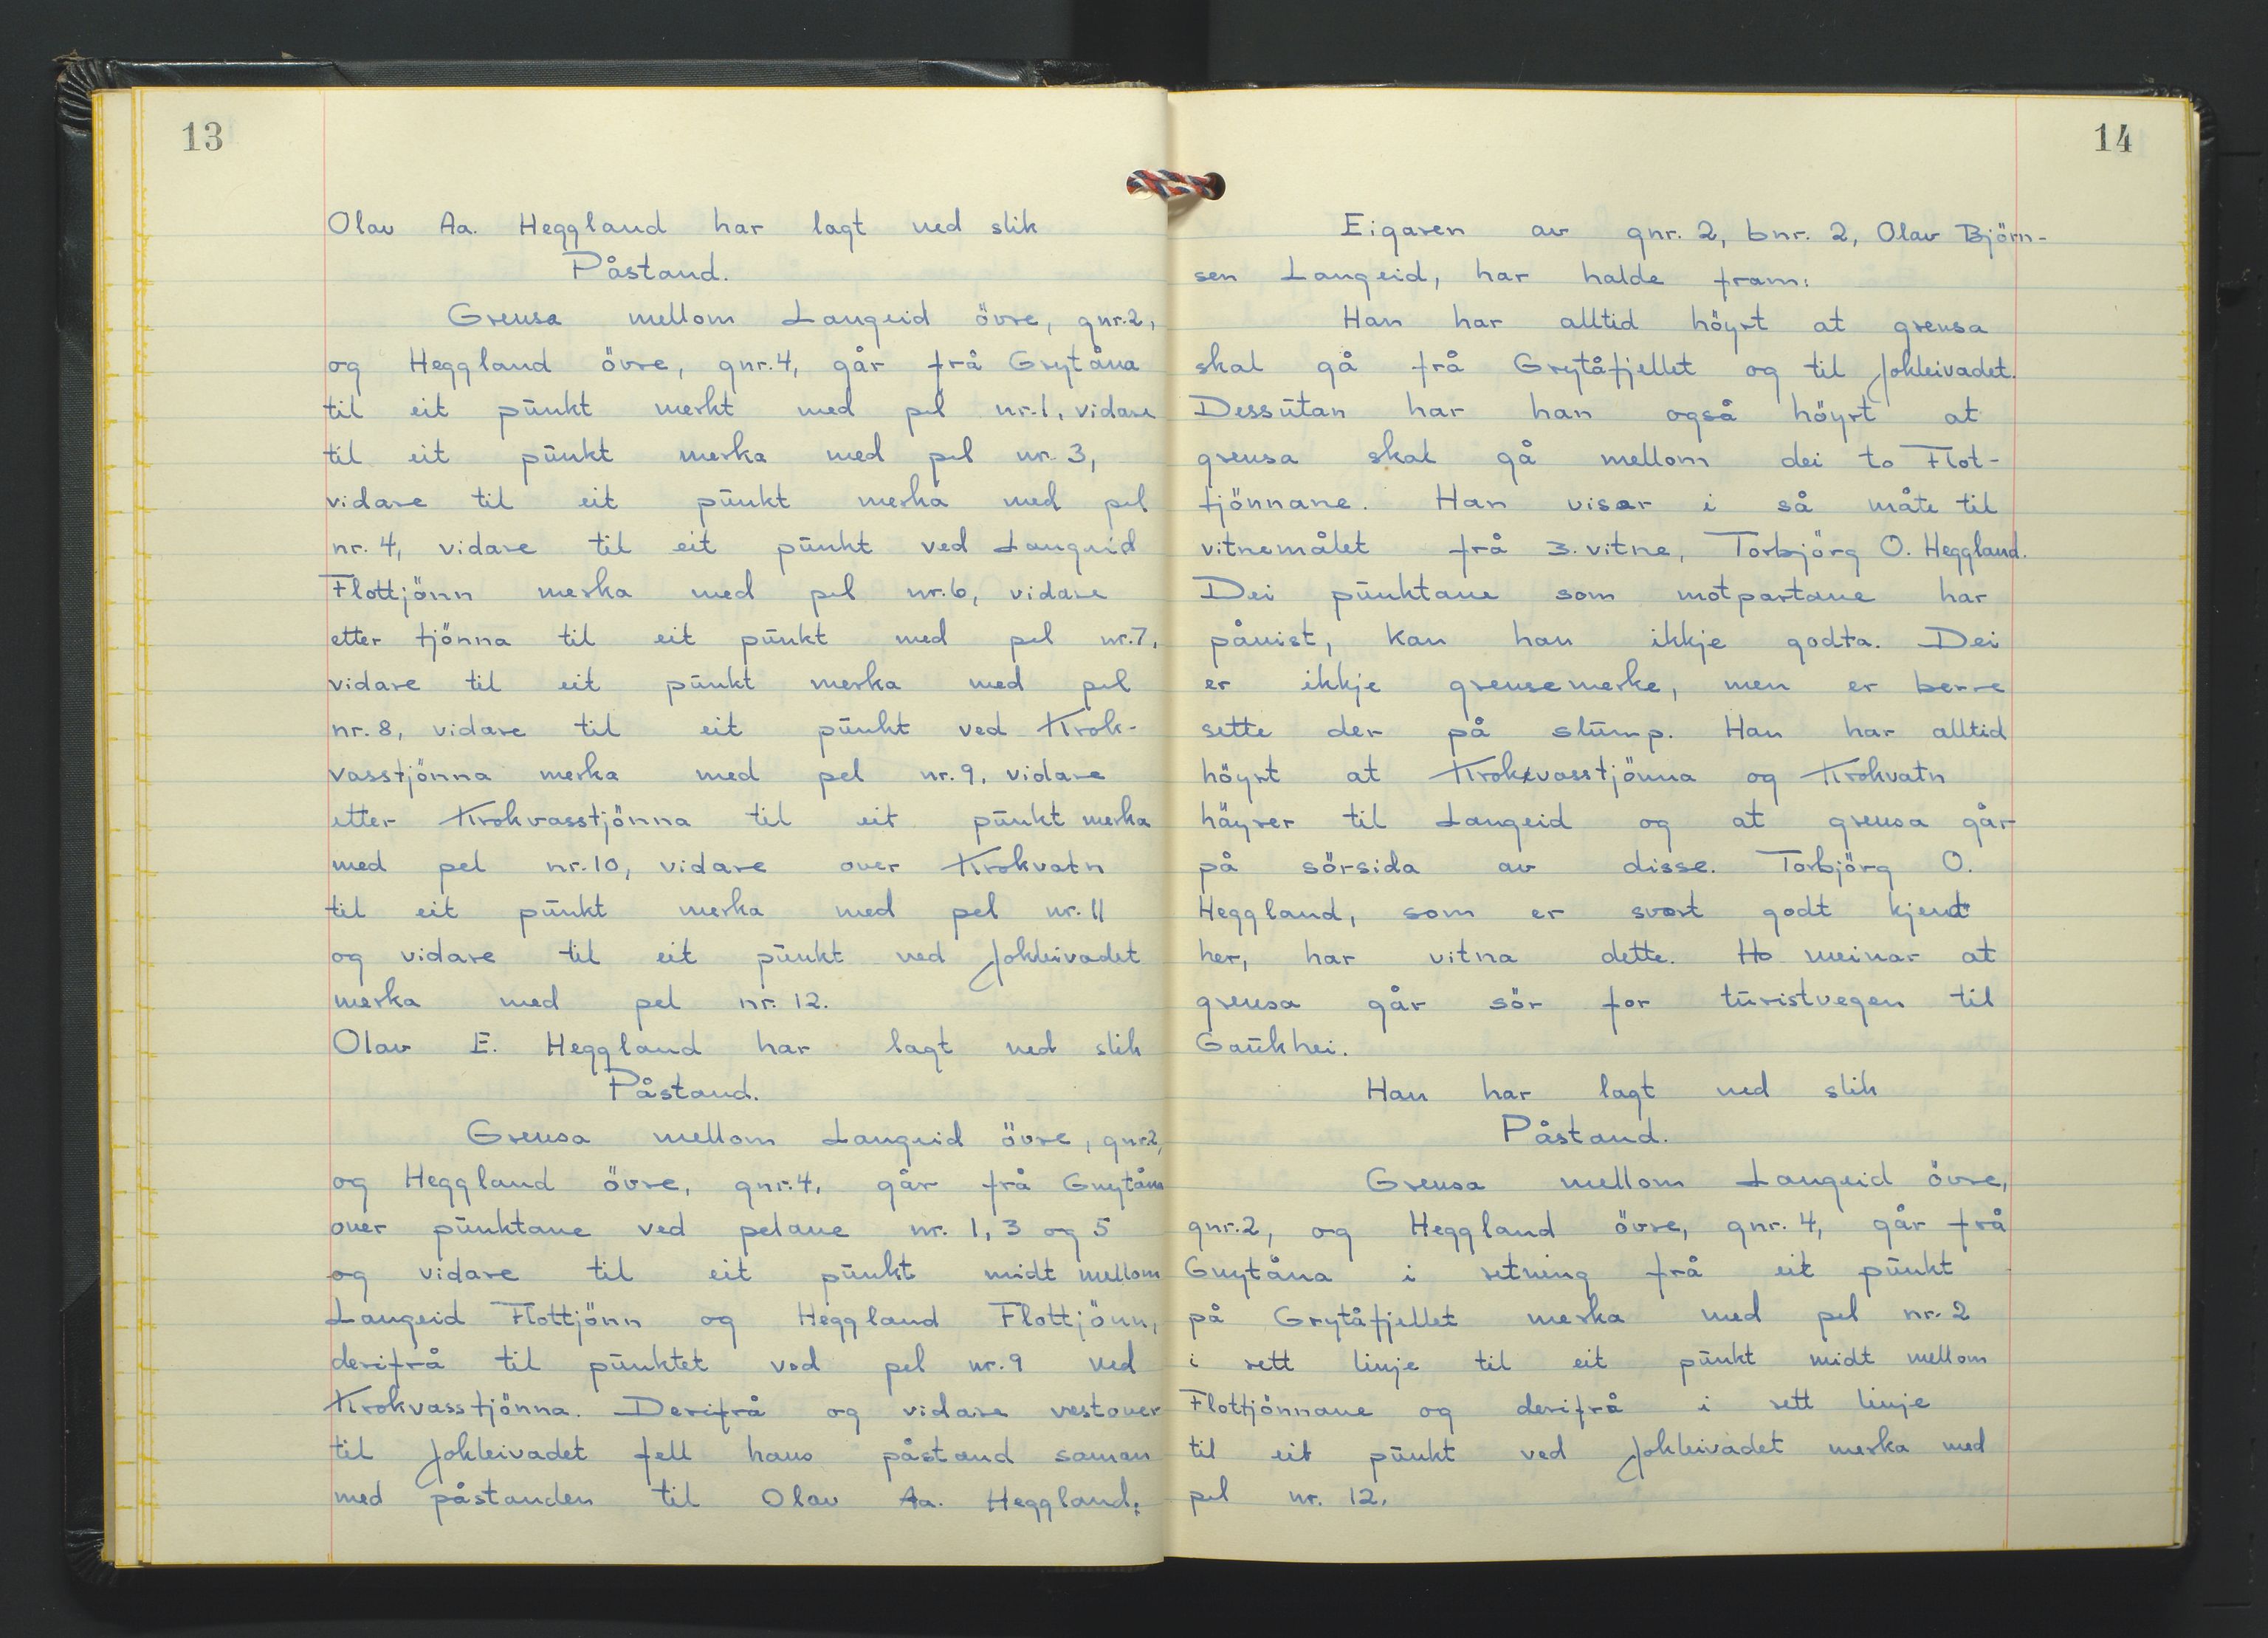 13
Olav Aa. Heggland har lagt ned slik
Påstand.
Grensa mellom Langeid övre, gnr. 2,
og Heggland övre, gnr. 4, går frå Grytåna
til eit punkt merkt med pel nr. 1, vidare
til eit punkt merka med pel nr. 3,
vidare til eit punkt merka med pel
nr. 4, vidare til eit punkt ved Langeid
Flottjönn merka med pel nr. 6, vidare
etter tjönna til eit punkt med pel nr. 7,
vidare til eit punkt merka med pel
nr. 8, vidare til eit punkt ved Krok-
vasstjönna merka med pel nr. 9, vidare
etter Krokvasstjönna til eit punkt merka
med pel nr. 10, vidare over Krokvatn
til eit punkt merka med pel nr. 11
og vidare til eit punkt ved Jokleivadet
merka med pel nr. 12.
Olav E. Heggland har lagt ned slik
Påstand.
Grensa mellom Langeid övre, gnr. 2,
og Heggland övre, gnr. 4, går frå Gnytåna
over punktane ved pelane nr. 1, 3 og 5
og vidare til eit punkt midt mellom
Langeid Flottjönn og Heggland Flottjönn,
derifrå til punktet ved pel nr. 9 ved
Krokvasstjönna. Derifrå og vidare vestover
til Jokleivadet fell hans påstand saman
med påstanden til Olav Aa. Heggland.
14
Eigaren av gnr. 2, bnr. 2, Olav Björn-
sen Langeid, har halde fram:
Han har alltid höyrt at grensa
skal gå frå Grytåfjellet og til Jokleivadet.
Dessutan har han også höyrt at
grensa skal gå mellom dei to Flot-
tjönnane. Han visar i så måte til
vitnemålet frå 3. vitne, Torbjörg O. Heggland.
Dei punktane som motpartane har
påvist, kan han ikkje godta. Dei
er ikkje grensemerke, men er berre
sette der på slump. Han har alltid
höyrt at Krokvasstjönna og Krokvatn
höyrer til Langeid og at grensa går
på sörsida av disse. Torbjörg O.
Heggland, som er svært godt kjent
her, har vitna dette. Ho meinar at
grensa går sör for turistvegen til
Gaukhei.
Han har lagt ned slik
Påstand.
Grensa mellom Langeid övre,
gnr. 2, og Heggland övre, gnr. 4, går frå
Gnytåna i retning frå eit punkt
på Grytåfjellet merka med pel nr. 2
i rett linje til eit punkt midt mellom
Flottjönnane og derifrå i rett linje
til eit punkt ved Jokleivadet merka med
pel nr. 12.